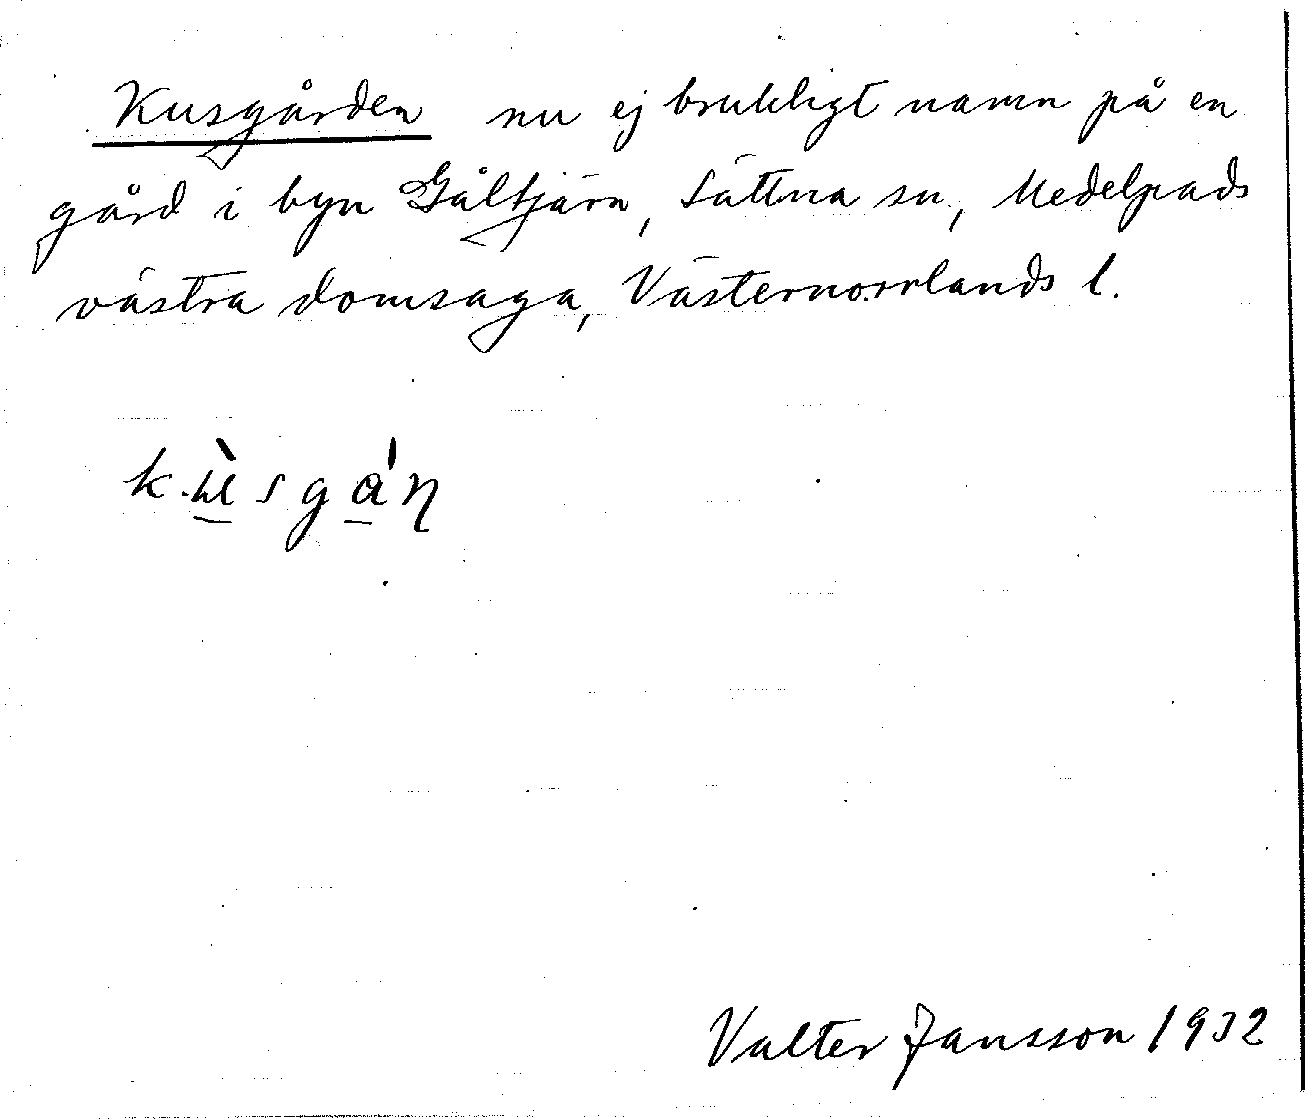 Kusgården nu ej brukligt namn på en
gård i byn Gåltjärn, Sättna sn, Medelpads
västra domsaga, Västernorrlands l.
kùsgán
Valter Jansson 1932